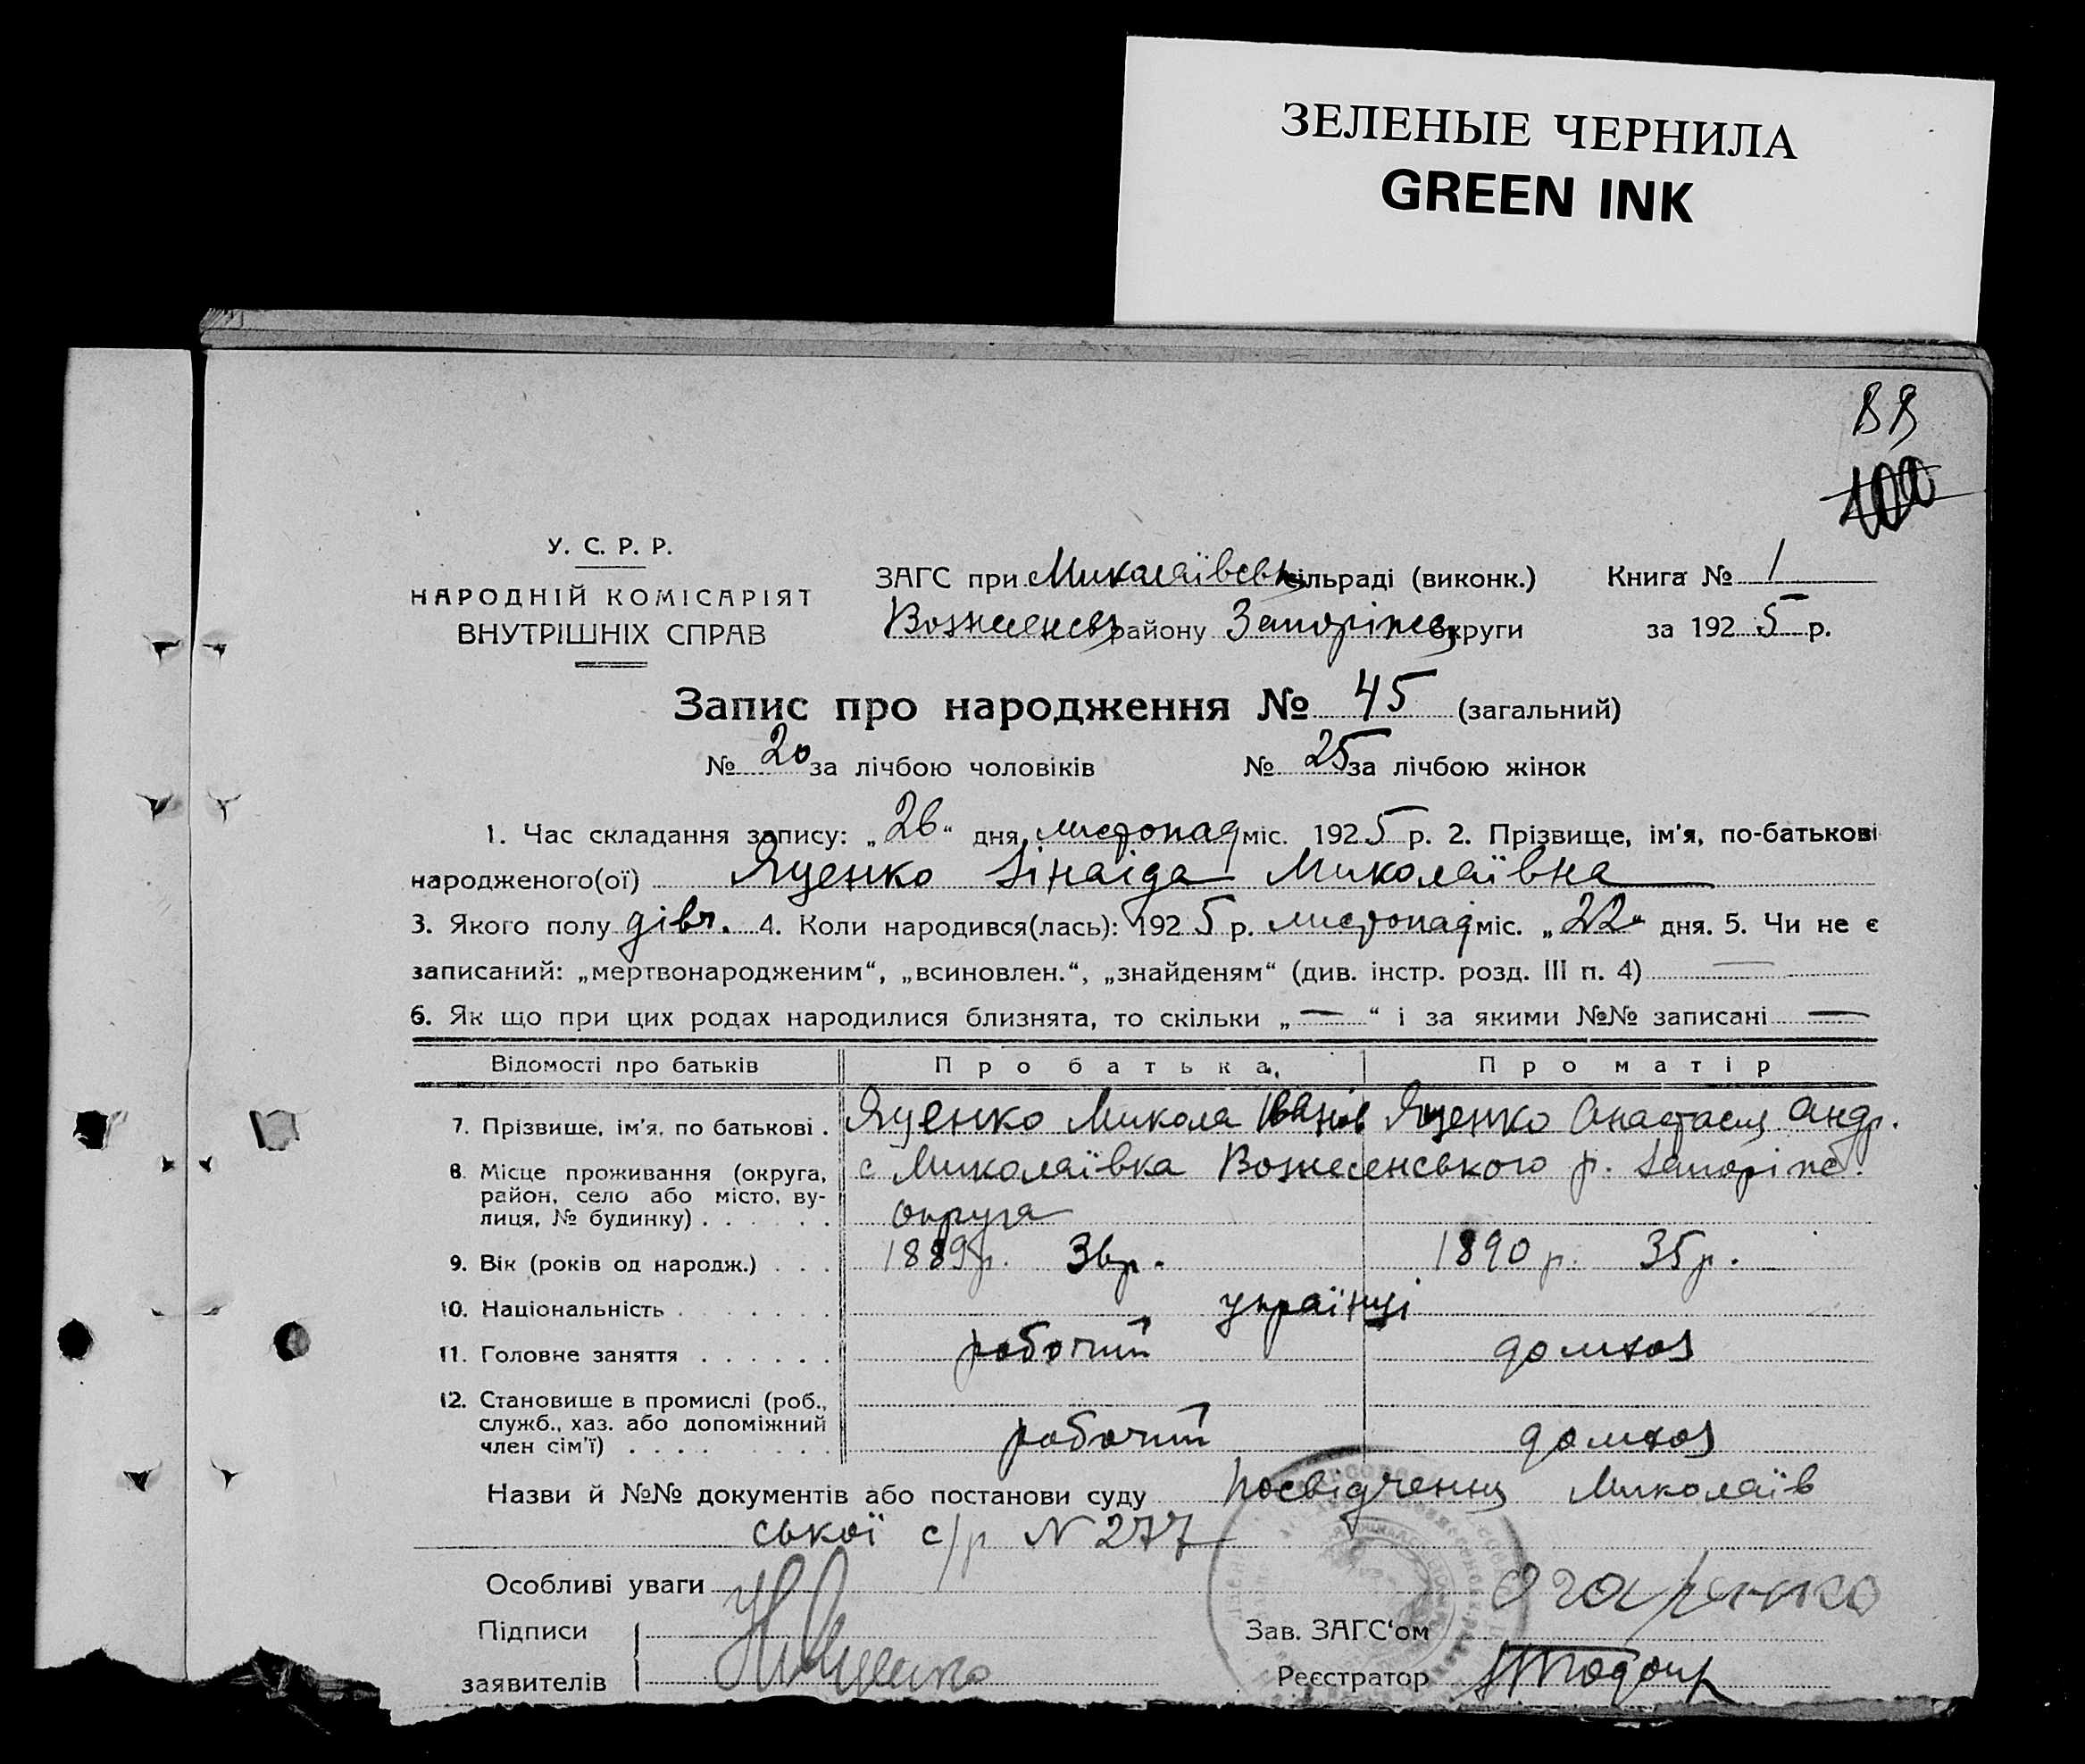 ЗЕЛЕНЫЕ ЧЕРНИЛА
GREEN INK
100
У. С. Р. Р.
НАРОДНІЙ КОМІСАРІЯТ
ВНУТРІШНІХ СПРАВ
ЗАГС при Микалаївськ сільраді (виконк.) Книга № 1
Вознесенськ району Запоріжськ округи за 1925 р.
Запис про народження № 45 (загальний)
№ 20 за лічбою чоловіків № 25 за лічбою жінок
1. Час складання запису: „26“ дня листопад міс. 1925 р. 2. Прізвище, ім'я, по-батькові
народженого(ої) Яценко Зінаіда Миколаївна
3. Якого полу дівч. 4. Коли народився(лась): 1925 р. листопад міс. „22“ дня. 5. Чи не є
записаний: „мертвонародженим“, „всиновлен.“, „знайденям“ (див. інстр. розд. III п. 4) —
6. Як що при цих родах народилися близнята, то скільки „—“ і за якими №№ записані —
Відомості про батьків Про батька Про матір
7. Прізвище, ім'я, по батькові . Яценко Микола Іванов Яценко Анастасия Андр.
8. Місце проживання (округа, с Миколаївка Вознесенського р. Запоріжс.
район, село або місто, ву-
лиця, № будинку) . . . . . . округа
9. Вік (років од народж.) . . . 1889р. 36р. 1890р. 35р.
10. Національність . . . . . . . українці
11. Головне заняття . . . . . . рабочий домхоз
12. Становище в промислі (роб.,
служб., хаз. або допоміжний
член сім'ї) . . . . . . . . рабочий домхоз
Назви й №№ документів або постанови суду посвідчення Миколаїв
ської с/р N 277
Особливі уваги
Підписи
заявителів НЯценко
Зав. ЗАГС'ом
Реєстратор